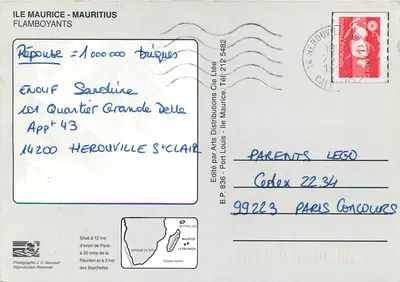 ILE MAURICE - MAURITIUS
FLAMBOYANTS
Réponse = 1 000 000 briques
ENOUF Sandrine
101 Quartier Grande Delle
Appt 43
14200 HEROUVILLE St CLAIR
Edité par Arts Distributions Cie Ltée
B.P. 836 - Port Louis - Ile Maurice. Tél: 212 5482
14 HEROUVILLE
PARENTS LEGO
Cedex 22.34
99223 PARIS CONCOURS
Situé à 12 hrs
d'avion de Paris
à 30 mins de la
Réunion et à 3 hrs
des Seychelles
SEYCHELLES
MAURICE
LA REUNION
OCEAN INDIEN
Reproduction Réservée